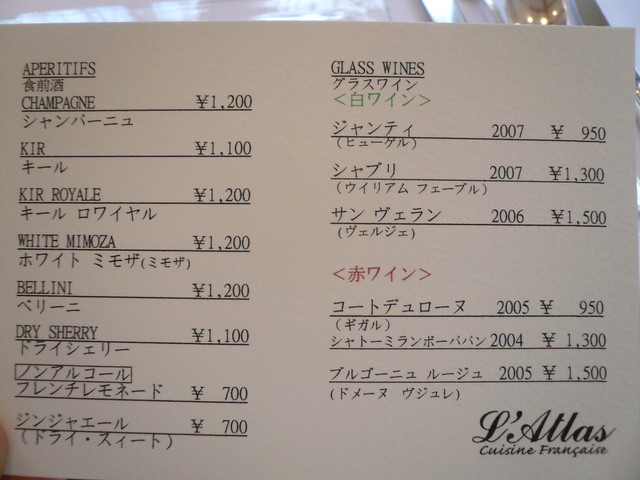 APERITIFS
食前酒
CHAMPAGNE ￥1,200
シャンパーニュ
KIR ￥1,100
キール
KIR ROYALE ￥1,200
キール ロワイヤル
WHITE MIMOZA ￥1,200
ホワイト ミモザ(ミモザ)
BELLINI ￥1,200
ベリーニ
DRY SHERRY ￥1,100
ドライシェリー
ノンアルコール
フレンチレモネード ￥ 700
ジンジャエール ￥ 700
(ドライ・スィート)
GLASS WINES
グラスワイン
＜白ワイン＞
ジャンティ 2007 ￥ 950
(ヒューゲル)
シャブリ 2007 ￥1,300
(ウイリアム フェーブル)
サン ヴェラン 2006 ￥1,500
(ヴェルジェ)
＜赤ワイン＞
コートデュローヌ 2005 ￥ 950
(ギガル)
シャトーミランボーパパン 2004 ￥ 1,300
ブルゴーニュ ルージュ 2005 ￥ 1,500
(ドメーヌ ヴジュレ)
L'Atlas
Cuisine Française